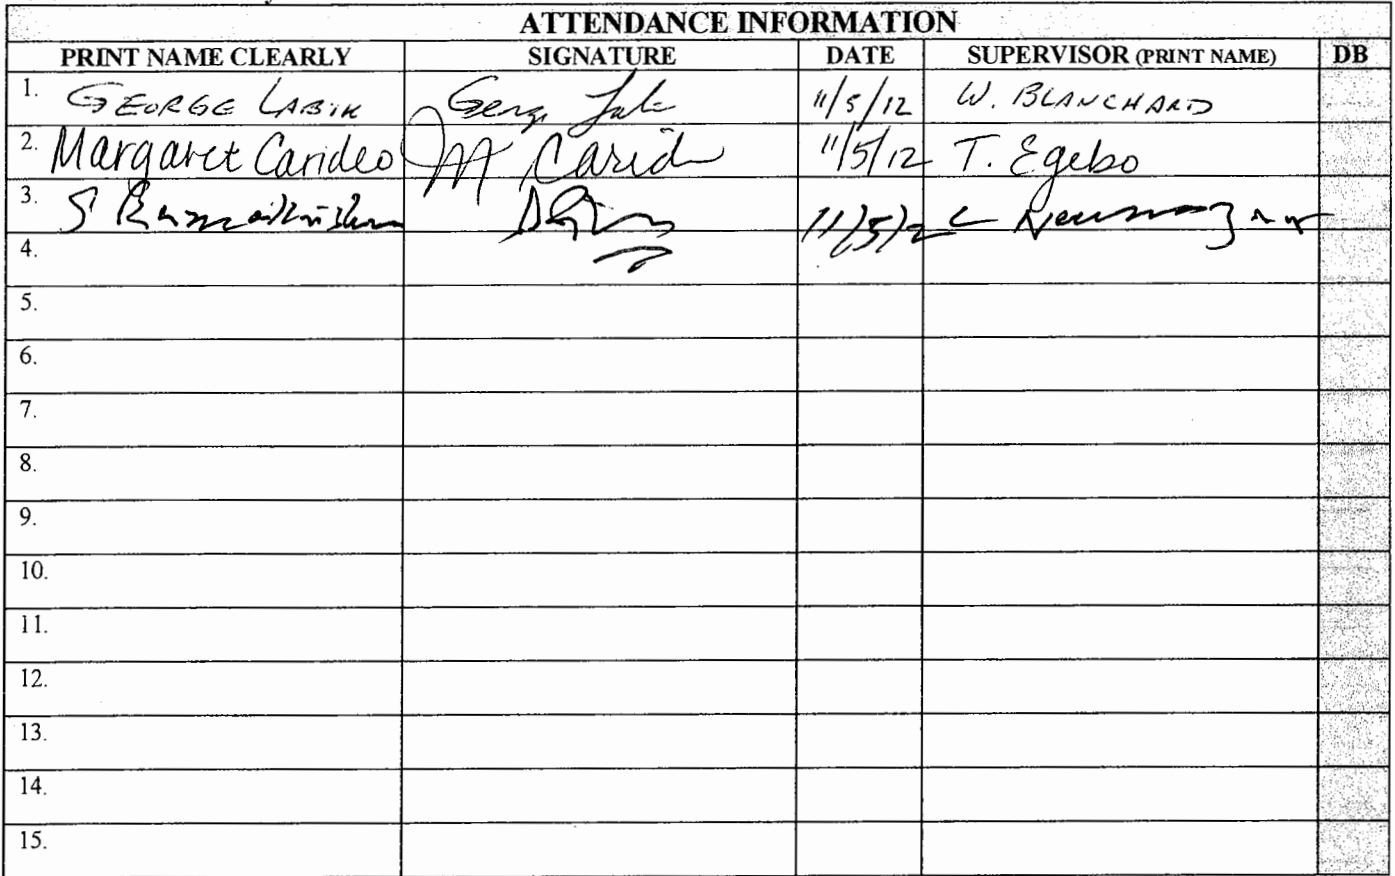 ATTENDANCE INFORMATION
PRINT NAME CLEARLY SIGNATURE DATE SUPERVISOR (PRINT NAME) DB
1. GEORGE LABIK 11/5/12 W. BLANCHARD
2. Margaret Carideo M Carid 11/5/12 T. Egebo
3. S 11/5/12
4.
5.
6.
7.
8.
9.
10.
11.
12.
13.
14.
15.